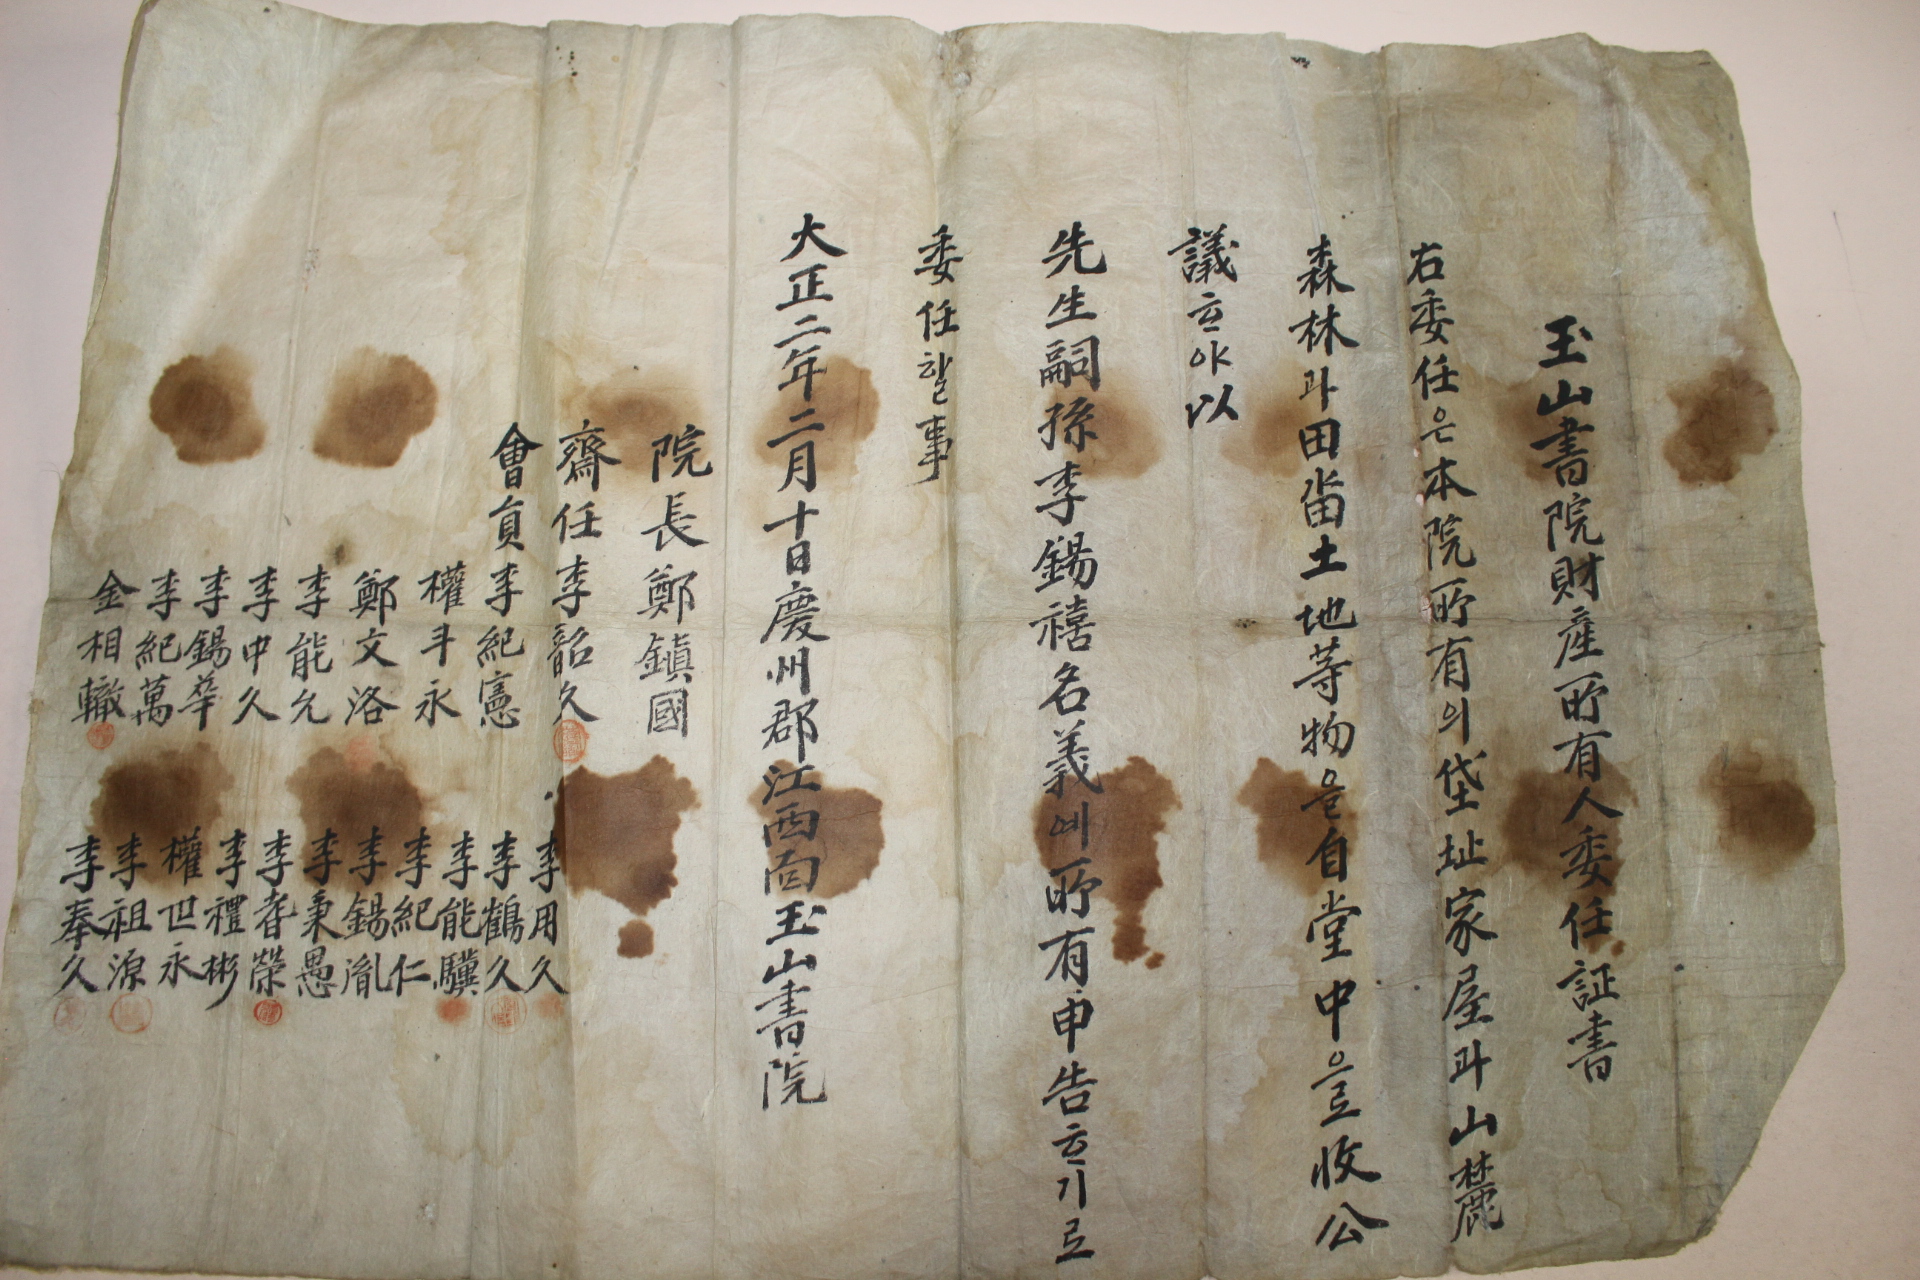 玉山書院財産所有人委任証書
右委任은本院所有의垈址家屋과山麓
森林과田畓土地等物을自堂中으로收公
議ᄒᆞ야以
先生嗣孫李錫禧名義예所有申告ᄒᆞ기로
委任할事
大正二年二月十日慶州郡江西面玉山書院
院長鄭鎭國
齋任李韶久
會員李紀憲
權斗永
鄭文洛
李能允
李中久
李錫華
李紀萬
金相轍
李用久
李鶴久
李能驥
李紀仁
李錫胤
李秉愚
李耆榮
李禮彬
權世永
李祖源
李奉久